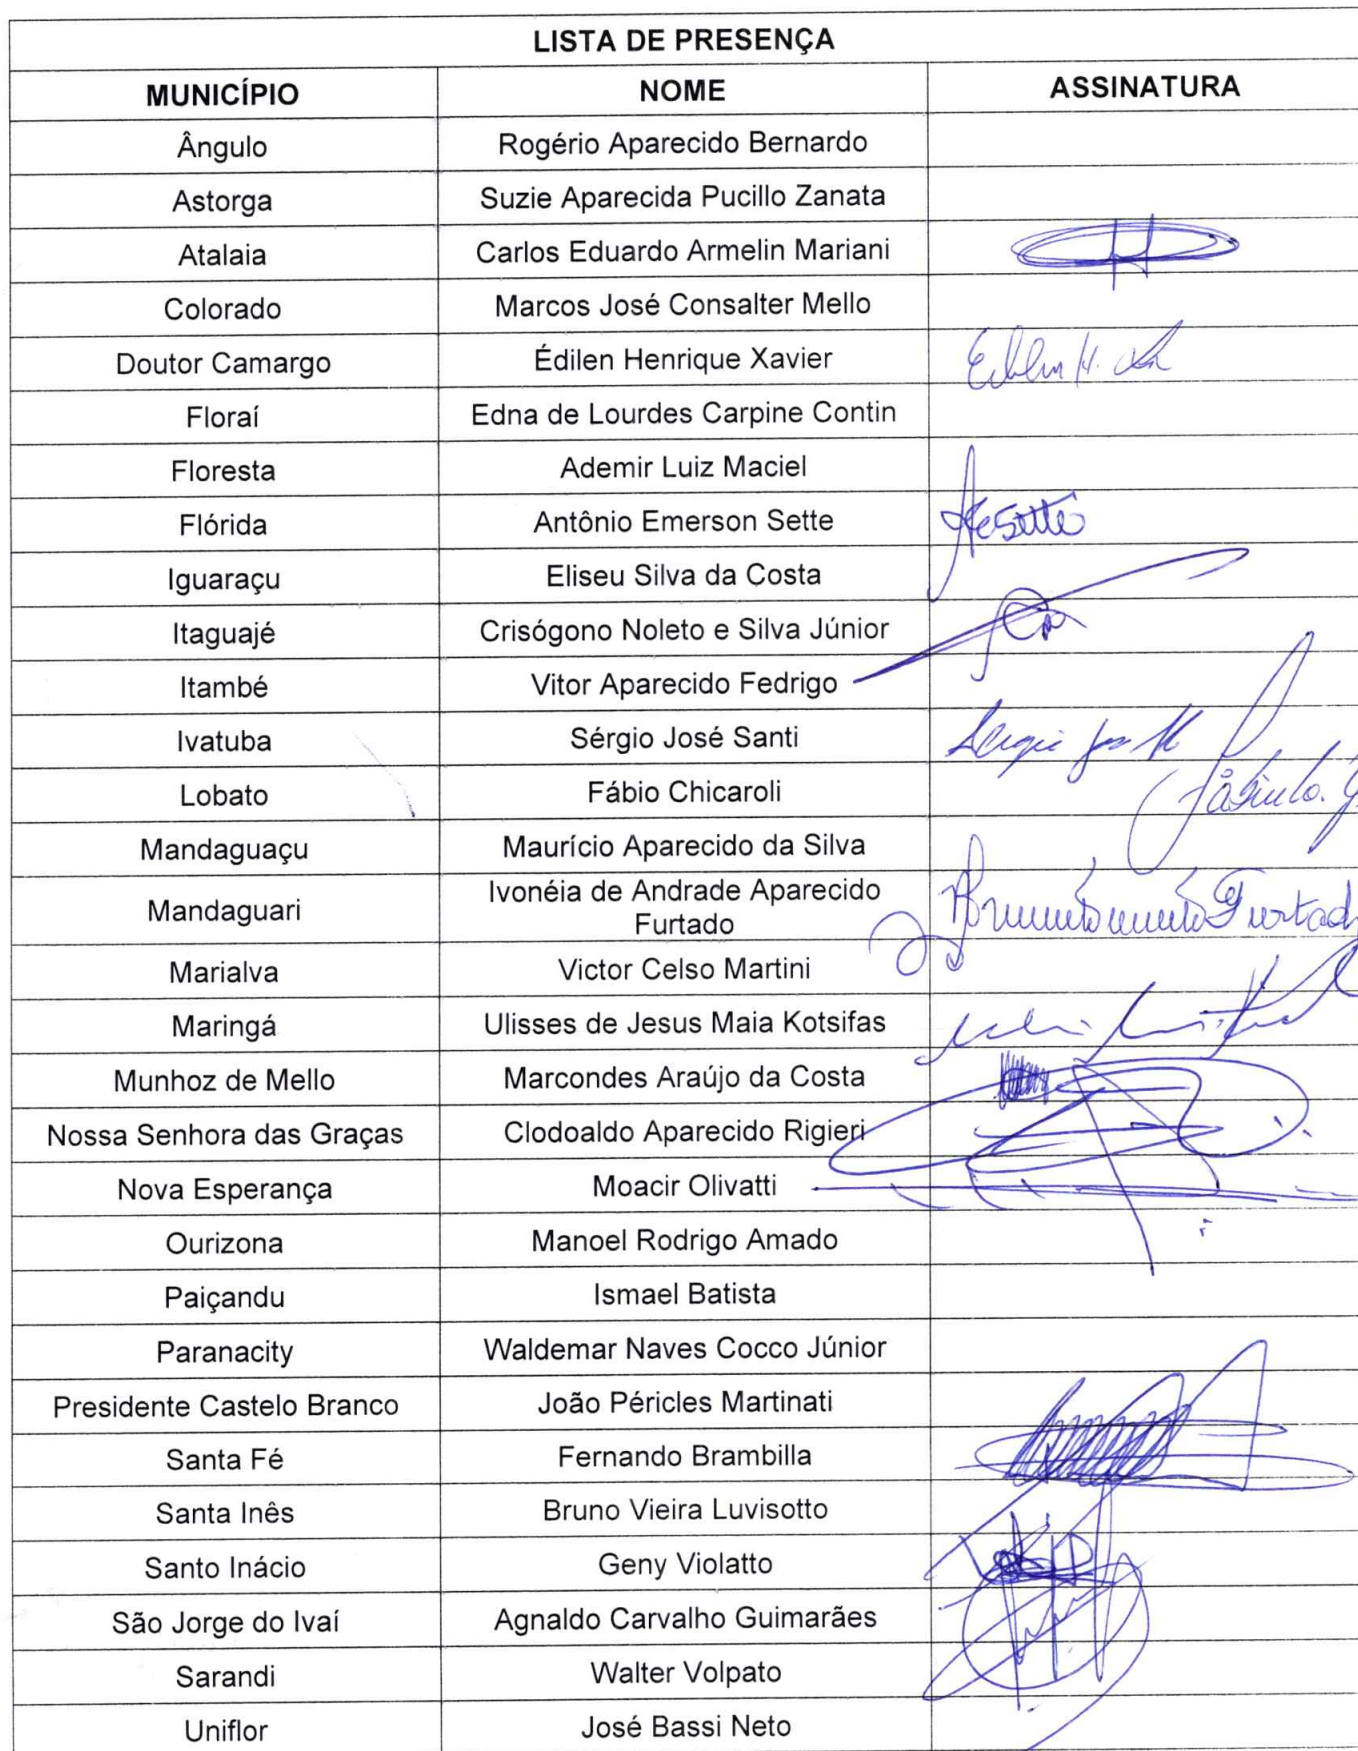 LISTA DE PRESENÇA
MUNICÍPIO NOME ASSINATURA
Ângulo Rogério Aparecido Bernardo
Astorga Suzie Aparecida Pucillo Zanata
Atalaia Carlos Eduardo Armelin Mariani
Colorado Marcos José Consalter Mello
Doutor Camargo Édilen Henrique Xavier
Floraí Edna de Lourdes Carpine Contin
Floresta Ademir Luiz Maciel
Flórida Antônio Emerson Sette
Iguaraçu Eliseu Silva da Costa
Itaguajé Crisógono Noleto e Silva Júnior
Itambé Vitor Aparecido Fedrigo
Ivatuba Sérgio José Santi
Lobato Fábio Chicaroli
Mandaguaçu Maurício Aparecido da Silva
Mandaguari Ivonéia de Andrade Aparecido
Furtado Furtado
Marialva Victor Celso Martini
Maringá Ulisses de Jesus Maia Kotsifas
Munhoz de Mello Marcondes Araújo da Costa
Nossa Senhora das Graças Clodoaldo Aparecido Rigieri
Nova Esperança Moacir Olivatti
Ourizona Manoel Rodrigo Amado
Paiçandu Ismael Batista
Paranacity Waldemar Naves Cocco Júnior
Presidente Castelo Branco João Péricles Martinati
Santa Fé Fernando Brambilla
Santa Inês Bruno Vieira Luvisotto
Santo Inácio Geny Violatto
São Jorge do Ivaí Agnaldo Carvalho Guimarães
Sarandi Walter Volpato
Uniflor José Bassi Neto